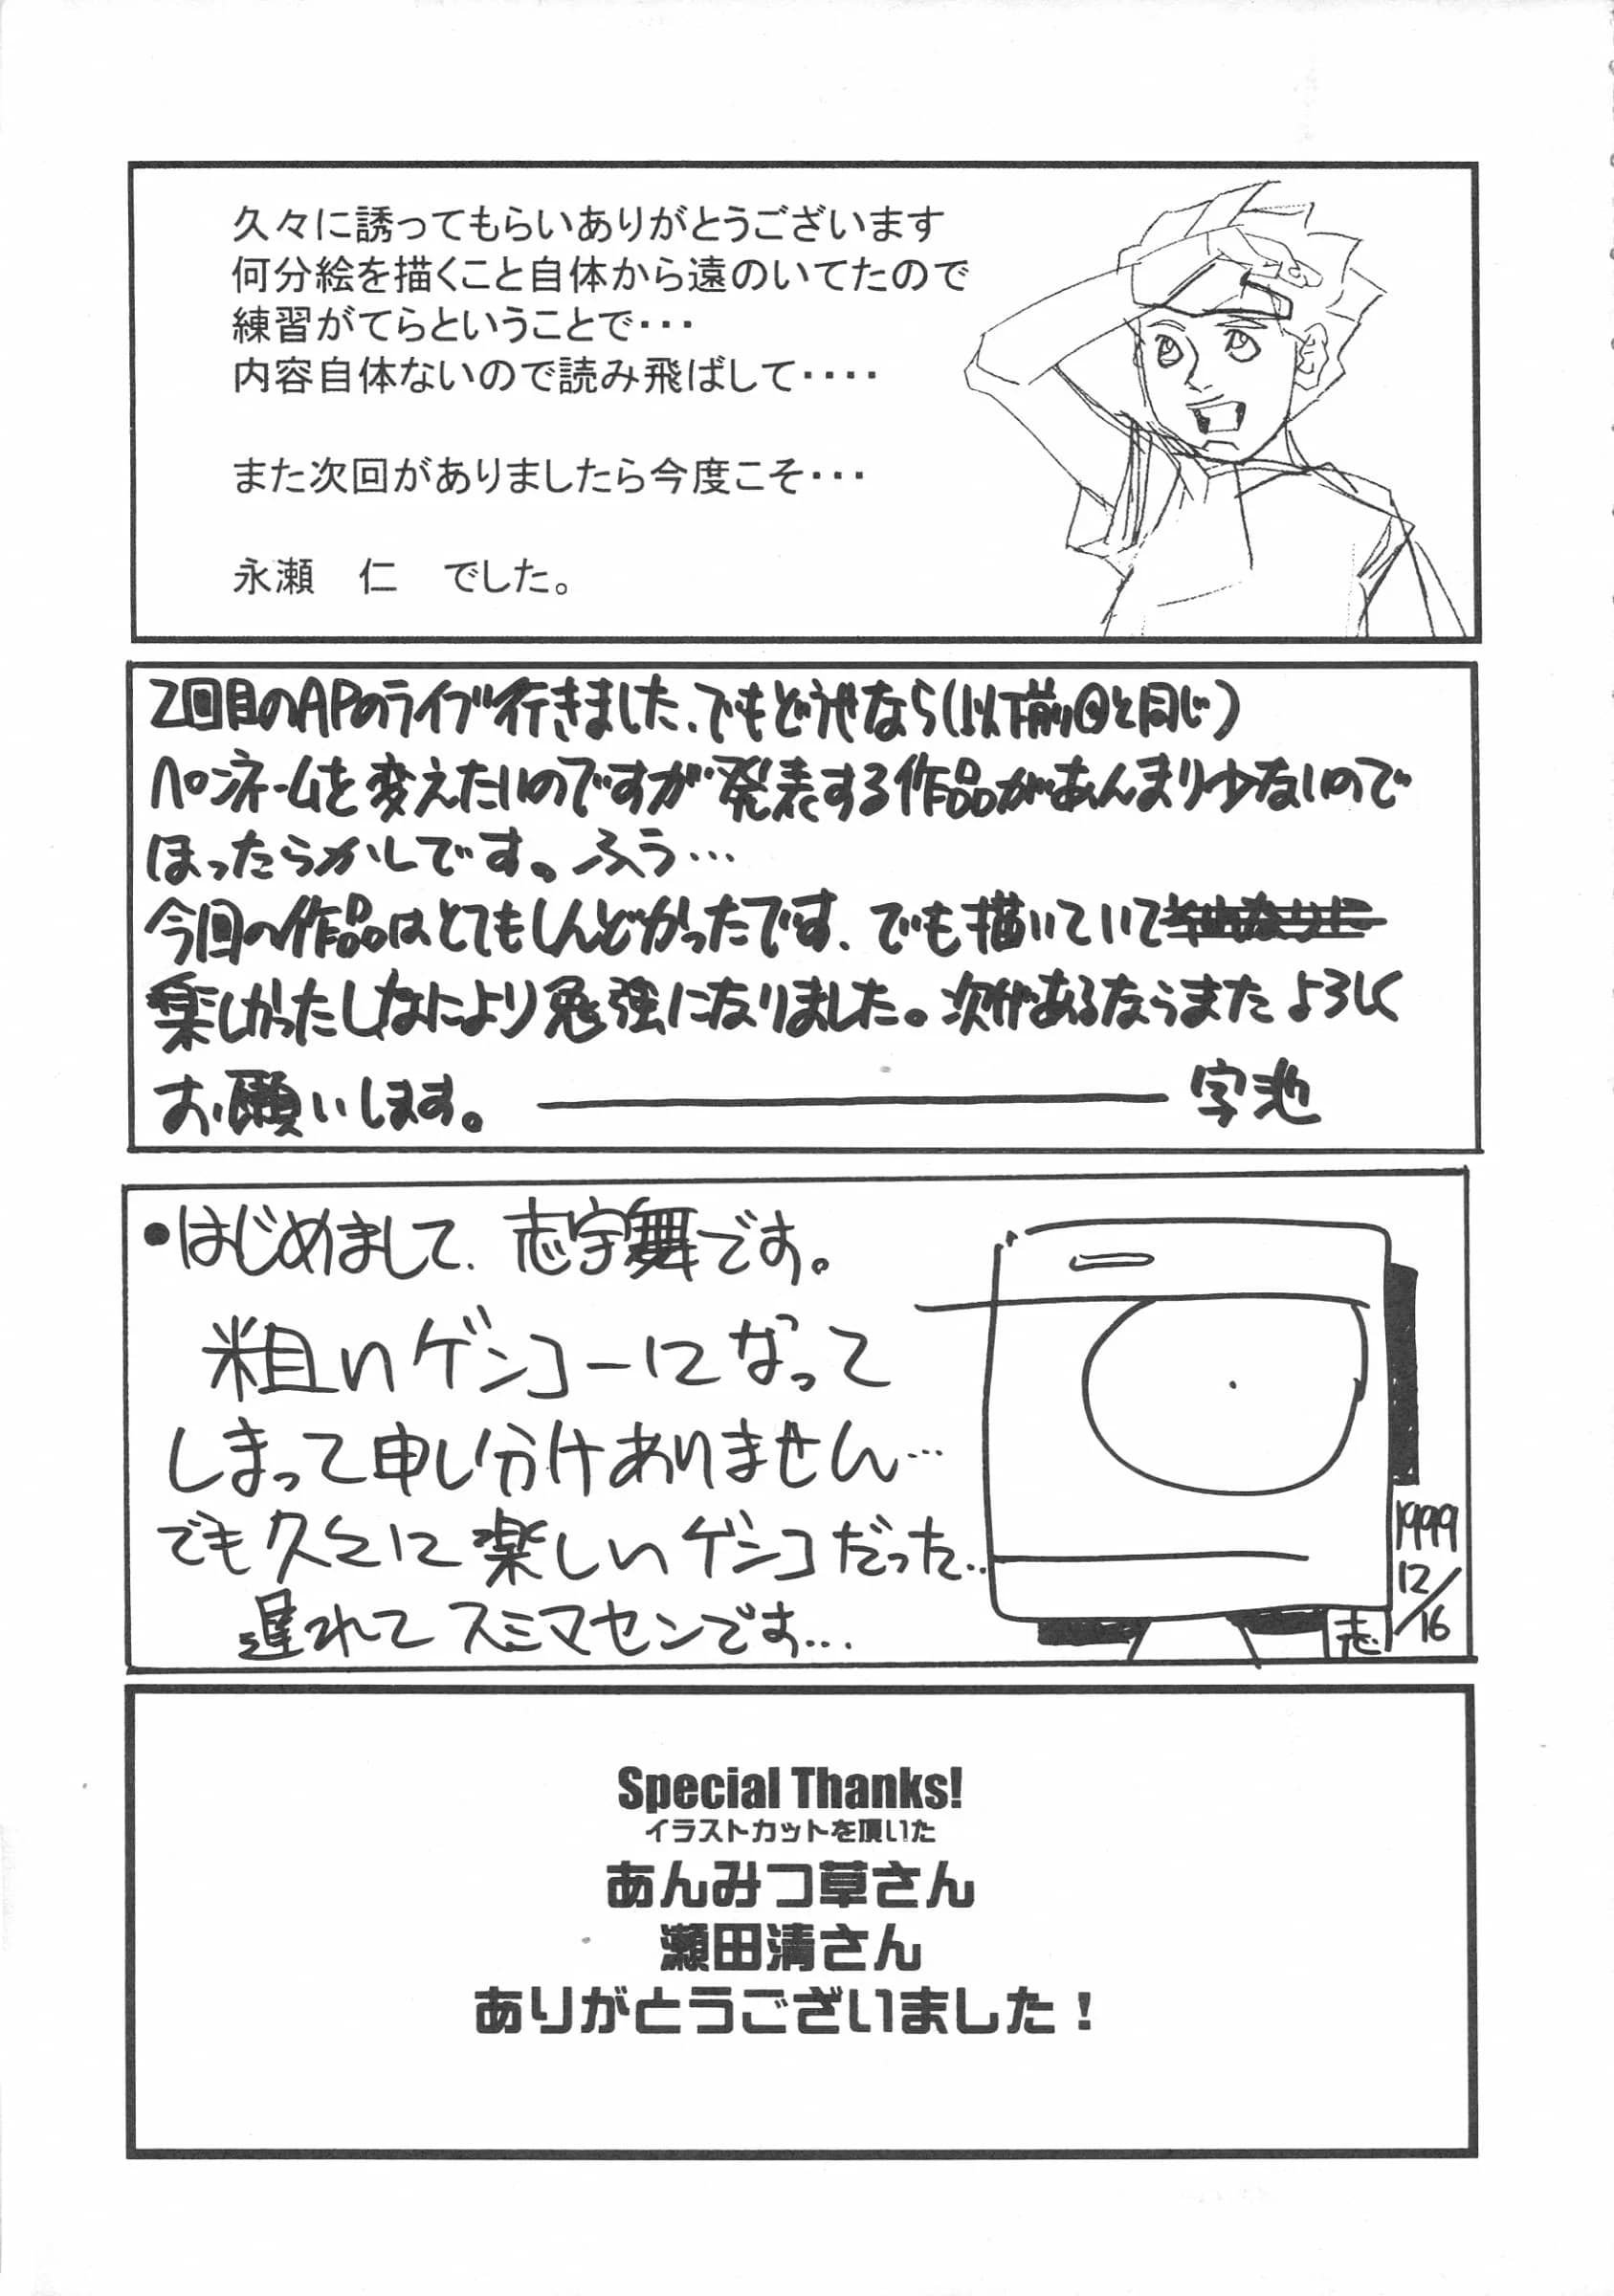 久々に誘ってもらいありがとうございます
何分絵を描くこと自体から遠のいてたので
練習がてらということで・・・
内容自体ないので読み飛ばして・・・・
また次回がありましたら今度こそ・・・
永瀬　仁　でした。
2回目のAPのライブ行きました、でもどうせなら(以下前回と同じ)
ペンネームを変えたいのですが発表する作品があんまり少ないので
ほったらかしです。ふう…
今回の作品はとてもしんどかったです、でも描いていて
楽しかったしなにより勉強になりました。次があるならまたよろしく
お願いします。――― 宇池
・はじめまして、志宇舞です。
粗いゲンコーになって
しまって申し分けありません…
でも久々に楽しいゲンコだった..
遅れてスミマセンです...
1999
12/16
志
Special Thanks!
イラストカットを頂いた
あんみつ草さん
瀬田清さん
ありがとうございました！